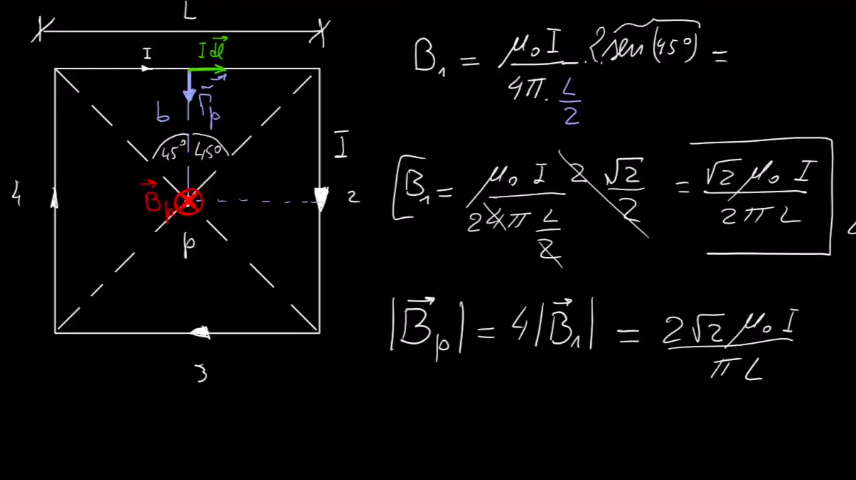 L
I I d͞l⃗
b r⃗p
45° 45°
I
4 B⃗p 2
p
3
B₁ = μ₀ I / 4π · L/2 · 2 sen (45°) =
B₁ = μ₀ I / 2 4 π L/2 2 √2/2 = √2 μ₀ I / 2 π L
|B⃗p| = 4|B⃗₁| = 2√2 μ₀ I / π L